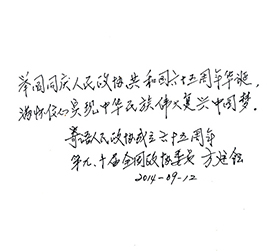 举国同庆人民政协共和国六十五周年华诞,
满怀信心实现中华民族伟大复兴中国梦。
寄语人民政协成立六十五周年
第九、十届全国政协委员 方廷钰
2014-09-12